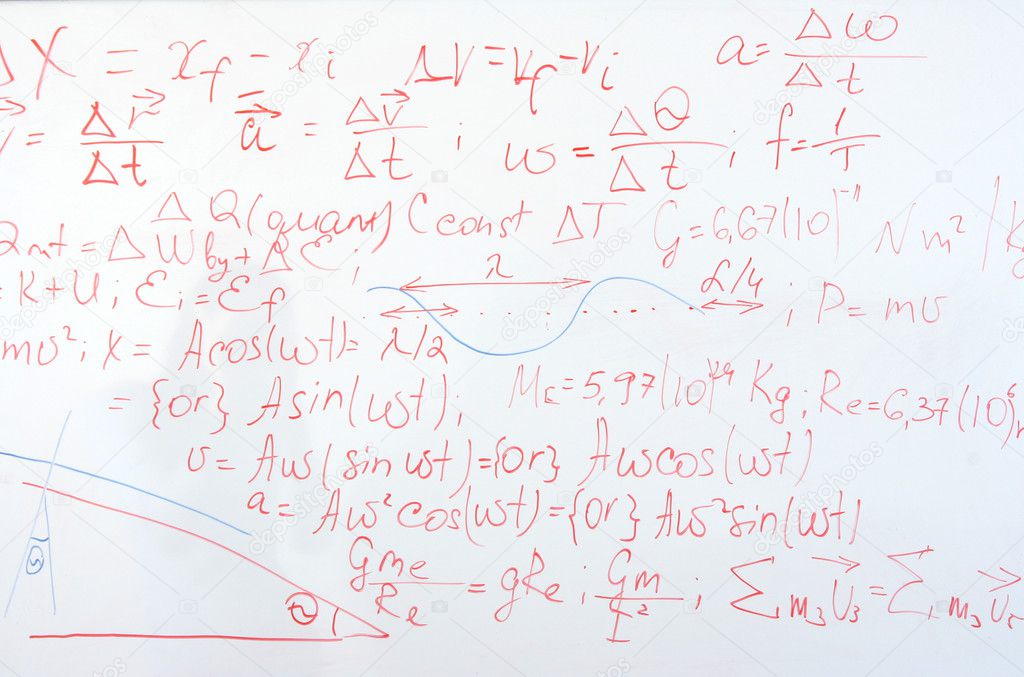 ΔX = x_f - x_i    ΔV = V_f - V_i    a = Δω / Δt
= Δr⃗ / Δt    a⃗ = Δv⃗ / Δt ;    ω = ΔΘ / Δt ;    f = 1/T
Δ Q (quant) C const ΔT    G = 6,67(10)^-11 N m² /
= ΔW by + Δ Ɛ ;
λ
= K + U ; Ɛ_i = Ɛ_f    L/4 ; P = mv
mv² ; X = A cos(ωt) =    λ/2
= {or} A sin(ωt) ;    = 5,97(10)^24 Kg ; Re = 6,37(10)^6
v = Aω(sin ωt) = {or} Aω cos(ωt)
a = Aω² cos(ωt) = {or} Aω² sin(ωt)
Gme / Re = gRe ; Gm / r² ; Σ m₃v⃗₃ = Σ m₃v⃗
Θ